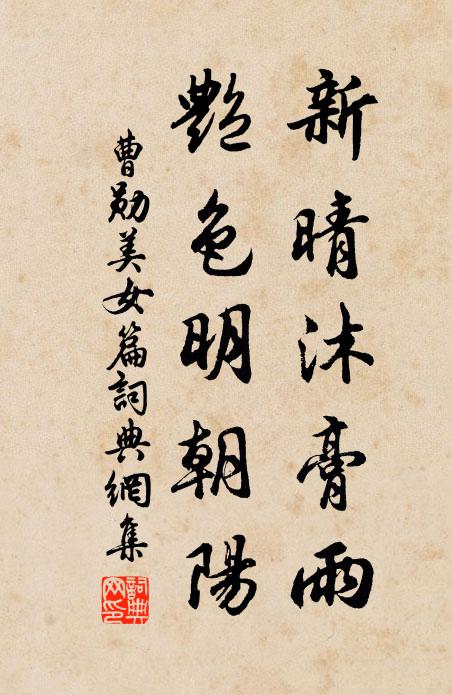 新晴沐膏雨
艷色明朝陽
曹勛美女篇詞典網集
詞典網印